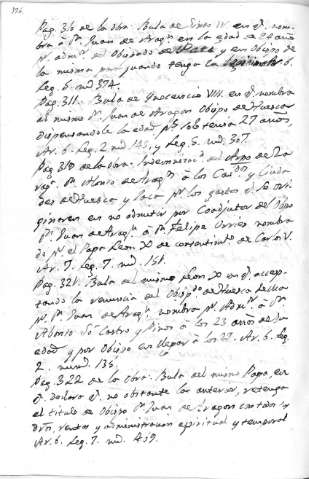 326
Pag. 316 de la obra. Bula de Sixto IV. en q.e nom-
bra a D.n Juan de Aragon en la edad de 24 años
p.r adm.or del Obispado de y en Obispo de
la misma p.a quando tenga la
Leg. 6. nu.o 374.
Pag. 311. Bula de Inocencio VIII. en q.e nombra
al mismo D.n Juan de Aragon Obispo de Huesca
dispensandole la edad p.s solo tenia 27 años.
Ar. 6. Leg. 2. nu.o 133, y Leg. 5. nu.o 307.
Pag. 318 de la obra. del Arpo de Za-
rag.a D.n Alonso de Arag.n a los Cav.os y Ciuda-
des de Huesca y Jaca p.r los gastos q.e se ori-
ginaren en no admitir por Coadjutor del Obispo
D.n Juan de Arag.n a D.n Felipe Urries nombra-
do p.r el Papa Leon X de consentim.to de Carlos V.
Ar. 7. Leg. 7. nu.o 151.
Pag. 321. Bula del mismo Leon X en q.e accep-
tando la renuncia del Obisp.do de Huesca hecha
p.r D.n Juan de Arag.n nombra p.r Adm.or a D.n
Alonso So Castro y Pinos a los 23 años de su
edad y por Obispo en llegar a los 27. Ar. 6. Leg.
2. num.o 135.
Pag. 322 de la obra. Bula del mismo Papa, en
q.e declara q.e no obstante la anterior, retenga
el titulo de Obispo D.n Juan de Aragon con
rentas y administracion espiritual y temporal
Ar. 6. Leg. 7. nu.o 439.